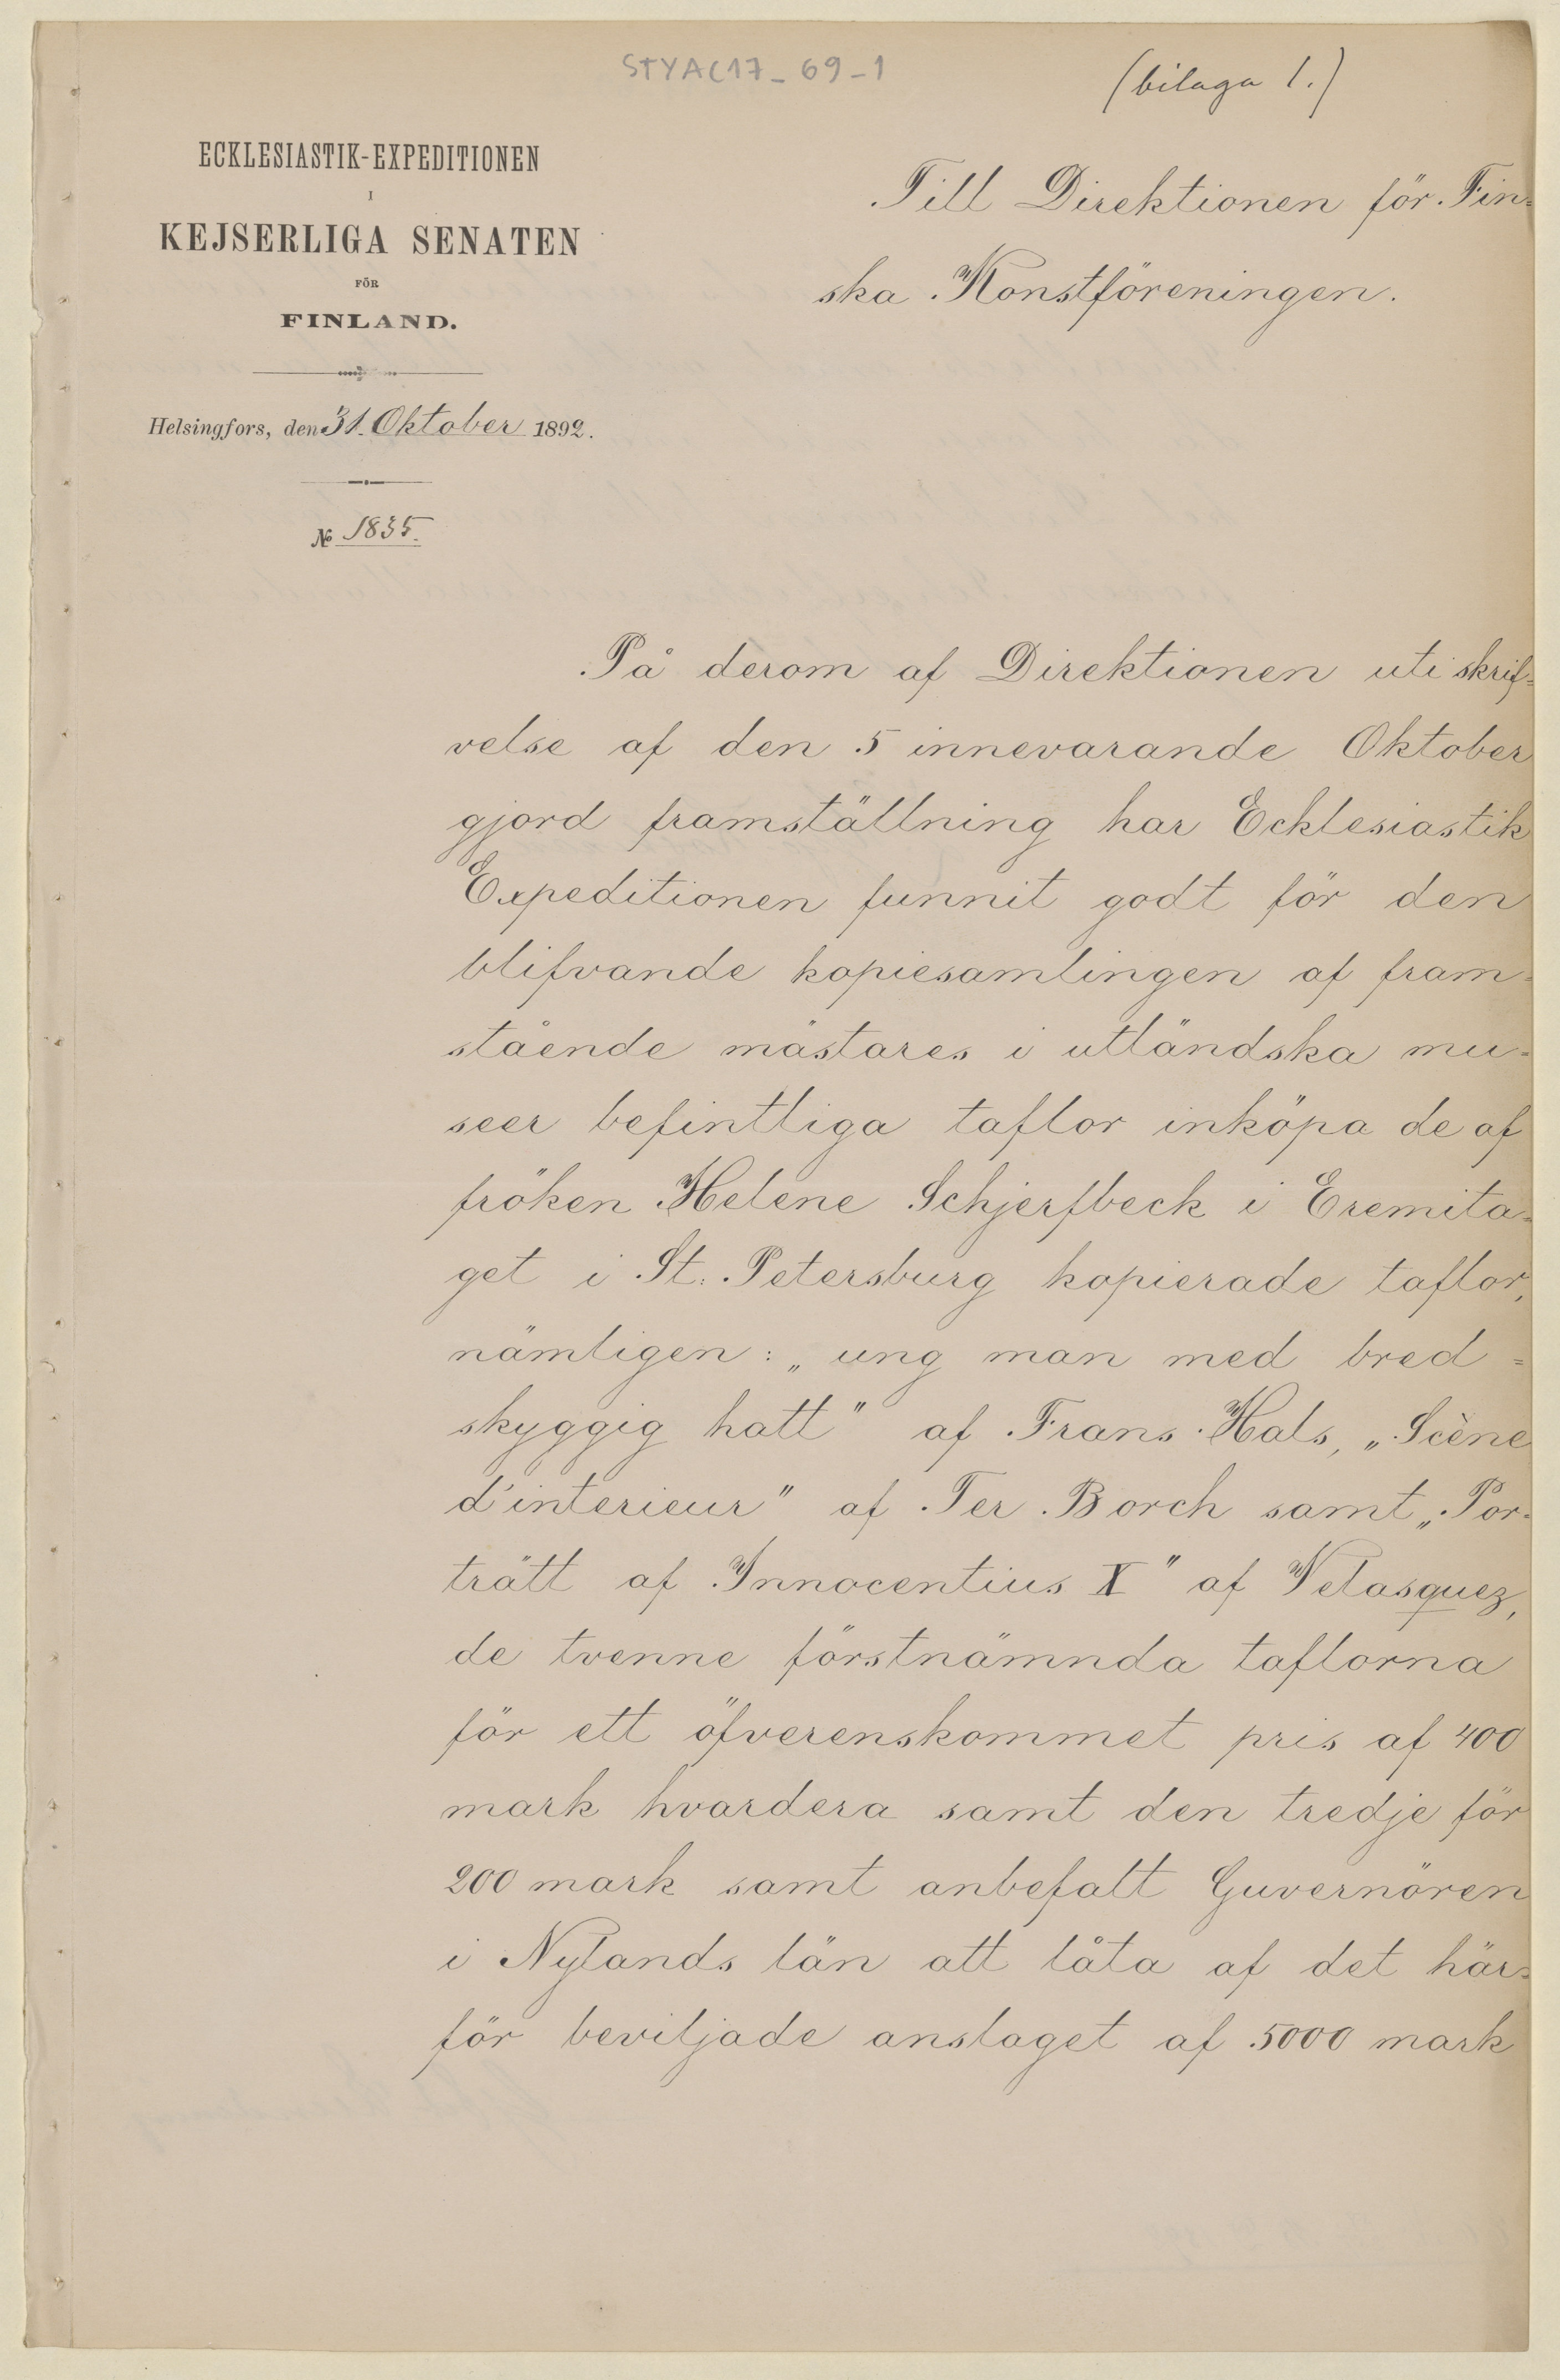 STYAC17_69_1
(bilaga 1.)
ECKLESIASTIK-EXPEDITIONEN
I
KEJSERLIGA SENATEN
FÖR
FINLAND.
Helsingfors, den 31. Oktober 1892.
№ 1835.
Till Direktionen för Fin-
ska Konstföreningen.
På derom af Direktionen uti skrif-
velse af den 5 innevarande Oktober
gjord framställning har Ecklesiastik
Expeditionen funnit godt för den
blifvande kopiesamlingen af fram-
stående mästares i utländska mu-
seer befintliga taflor inköpa de af
fröken Helene Schjerfbeck i Eremita-
get i St. Petersburg kopierade taflor,
nämligen: „ung man med bred-
skyggig hatt" af Frans Hals, „Scène
d'interieur" af Ter Borch samt „Por-
trätt af Innocentius X" af Velasquez,
de tvenne förstnämnda taflorna
för ett öfverenskommet pris af 400
mark hvardera samt den tredje för
200 mark samt anbefalt Guvernören
i Nylands län att låta af det här-
för beviljade anslaget af 5000 mark